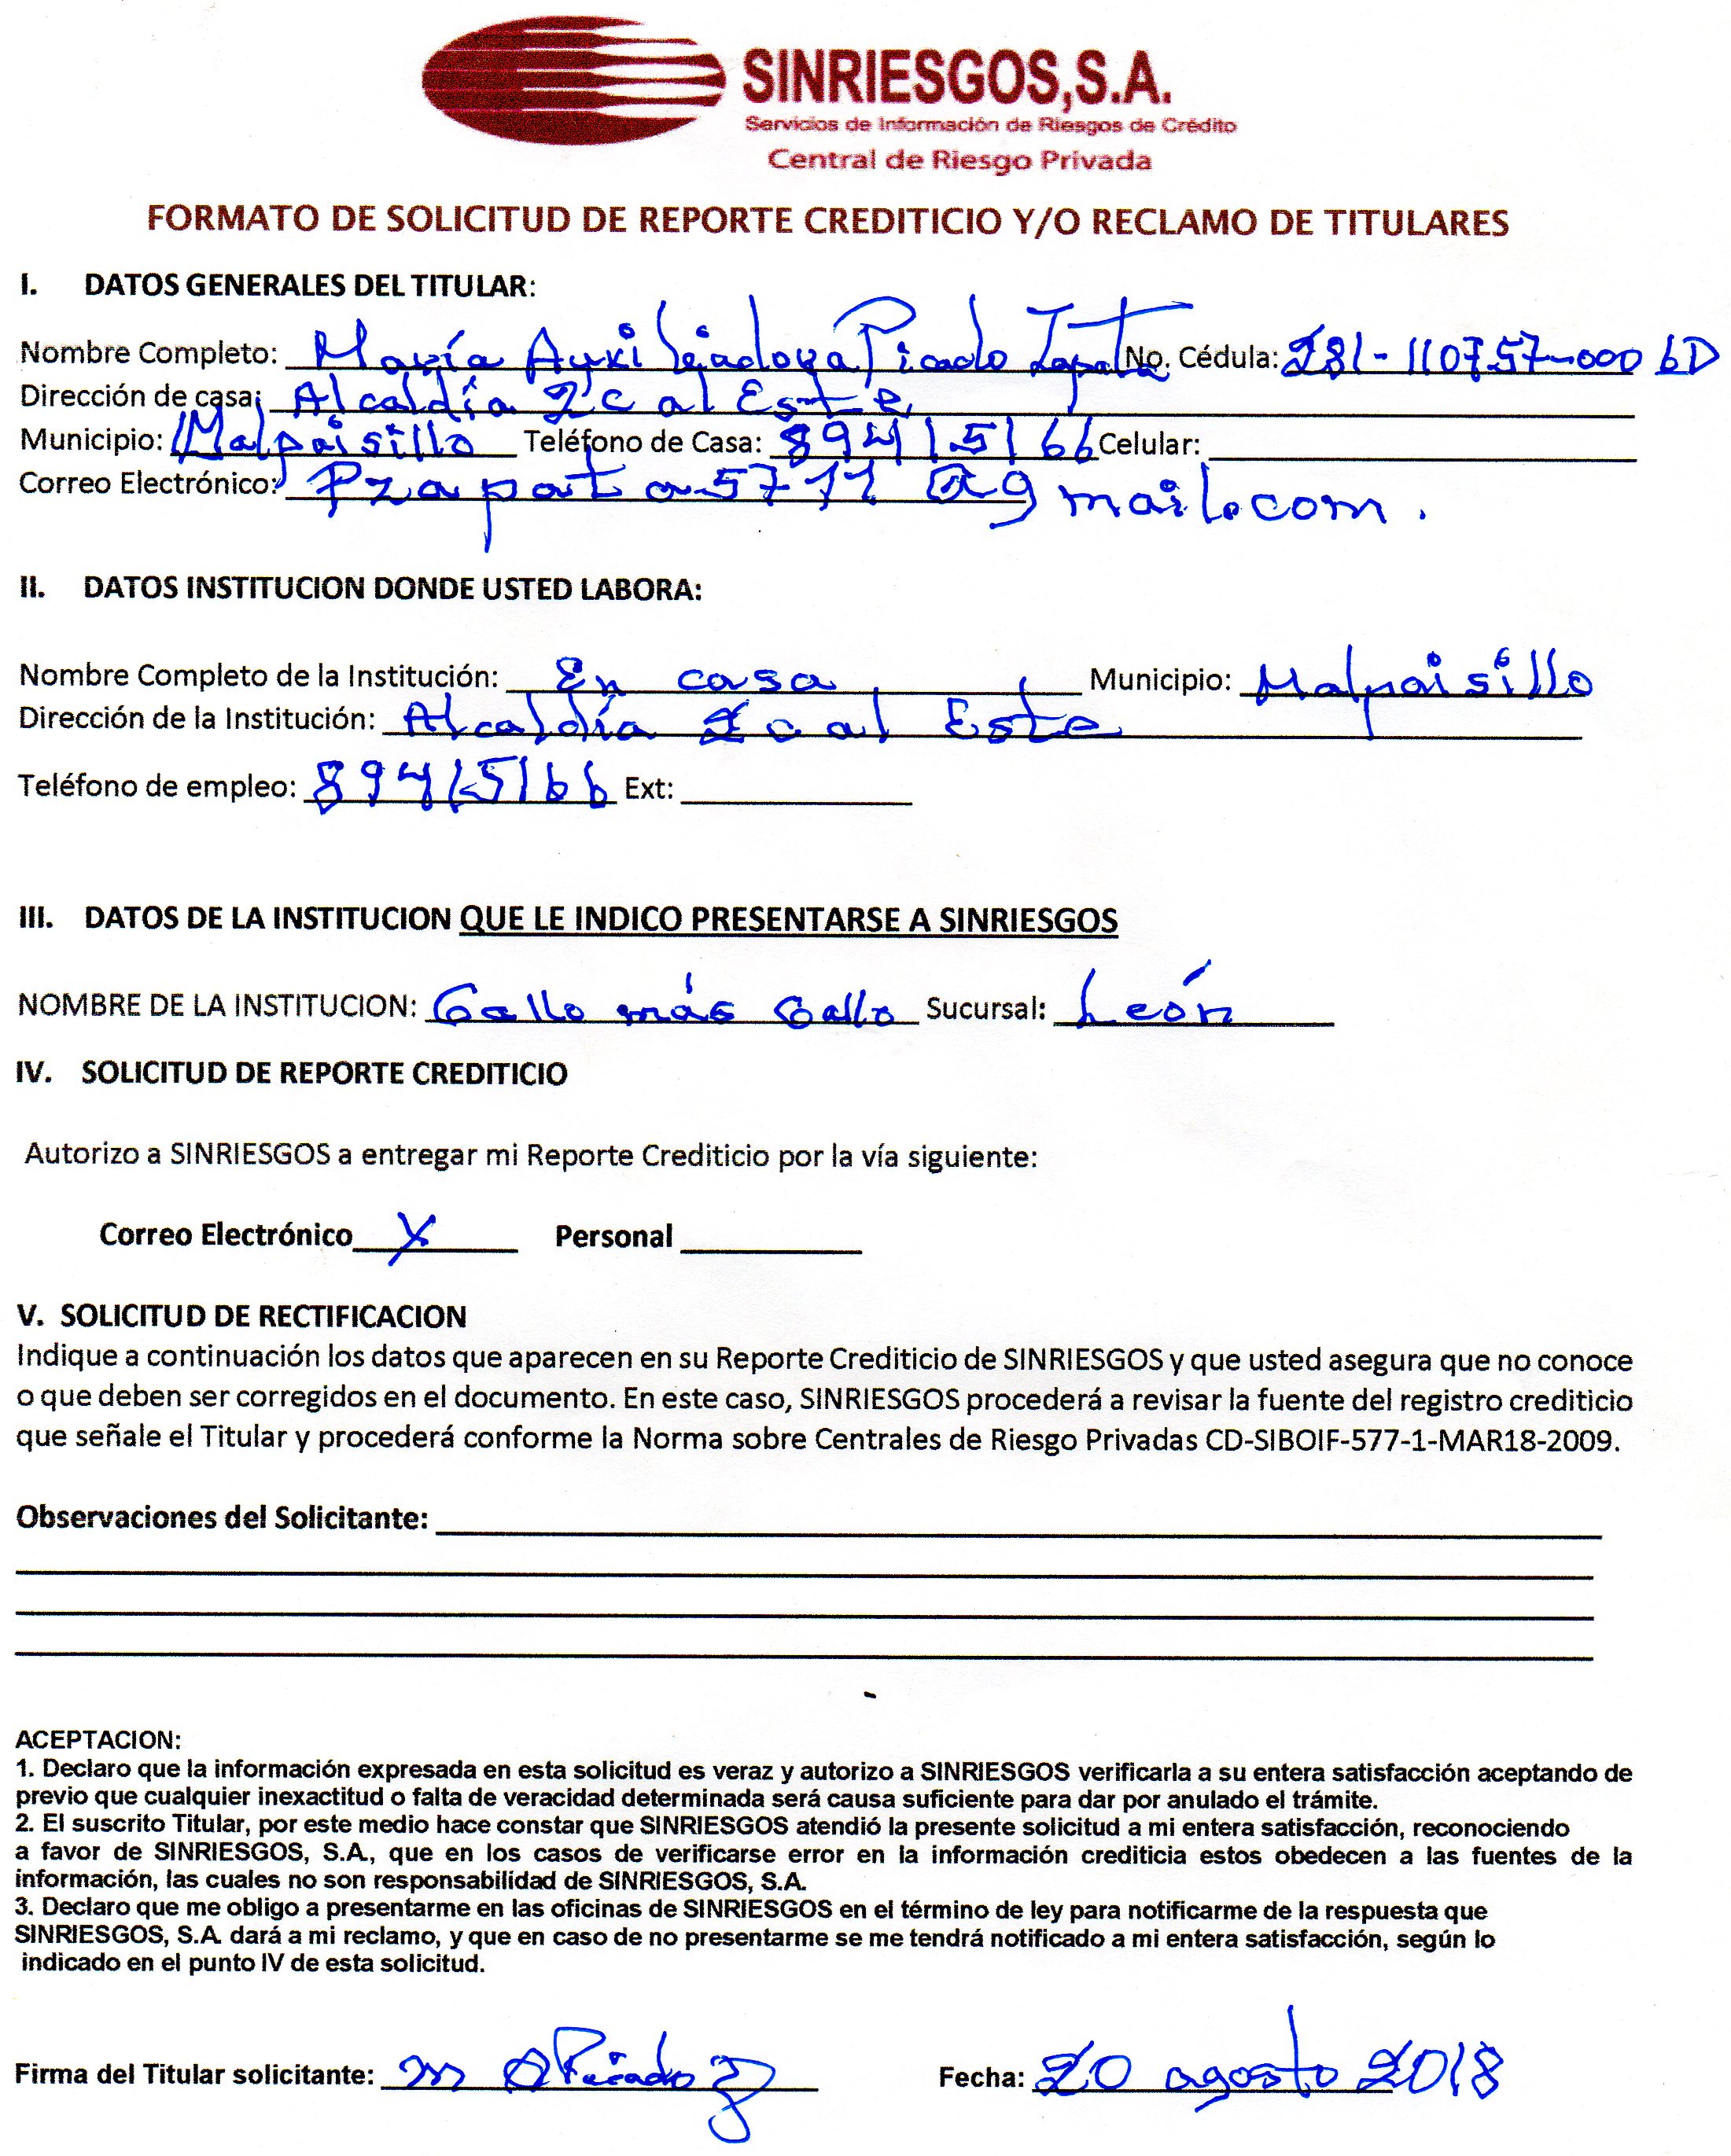 SINRIESGOS,S.A.
Servicios de Información de Riesgos de Crédito
Central de Riesgo Privada
FORMATO DE SOLICITUD DE REPORTE CREDITICIO Y/O RECLAMO DE TITULARES
I. DATOS GENERALES DEL TITULAR:
Nombre Completo: María Auxiliadora Picado Zapata No. Cédula: 281-110757-0006D
Dirección de casa: Alcaldía 2c al Este
Municipio: Malpaisillo Teléfono de Casa: 89415166 Celular:
Correo Electrónico: Pzapata5711@gmail.com.
II. DATOS INSTITUCION DONDE USTED LABORA:
Nombre Completo de la Institución: En casa Municipio: Malpaisillo
Dirección de la Institución: Alcaldía 2c al Este
Teléfono de empleo: 89415166 Ext:
III. DATOS DE LA INSTITUCION QUE LE INDICO PRESENTARSE A SINRIESGOS
NOMBRE DE LA INSTITUCION: Gallo más Gallo Sucursal: León
IV. SOLICITUD DE REPORTE CREDITICIO
Autorizo a SINRIESGOS a entregar mi Reporte Crediticio por la vía siguiente:
Correo Electrónico X Personal
V. SOLICITUD DE RECTIFICACION
Indique a continuación los datos que aparecen en su Reporte Crediticio de SINRIESGOS y que usted asegura que no conoce
o que deben ser corregidos en el documento. En este caso, SINRIESGOS procederá a revisar la fuente del registro crediticio
que señale el Titular y procederá conforme la Norma sobre Centrales de Riesgo Privadas CD-SIBOIF-577-1-MAR18-2009.
Observaciones del Solicitante:
ACEPTACION:
1. Declaro que la información expresada en esta solicitud es veraz y autorizo a SINRIESGOS verificarla a su entera satisfacción aceptando de
previo que cualquier inexactitud o falta de veracidad determinada será causa suficiente para dar por anulado el trámite.
2. El suscrito Titular, por este medio hace constar que SINRIESGOS atendió la presente solicitud a mi entera satisfacción, reconociendo
a favor de SINRIESGOS, S.A., que en los casos de verificarse error en la información crediticia estos obedecen a las fuentes de la
información, las cuales no son responsabilidad de SINRIESGOS, S.A.
3. Declaro que me obligo a presentarme en las oficinas de SINRIESGOS en el término de ley para notificarme de la respuesta que
SINRIESGOS, S.A. dará a mi reclamo, y que en caso de no presentarme se me tendrá notificado a mi entera satisfacción, según lo
indicado en el punto IV de esta solicitud.
Firma del Titular solicitante: M A Picado Z Fecha: 20 agosto 2018